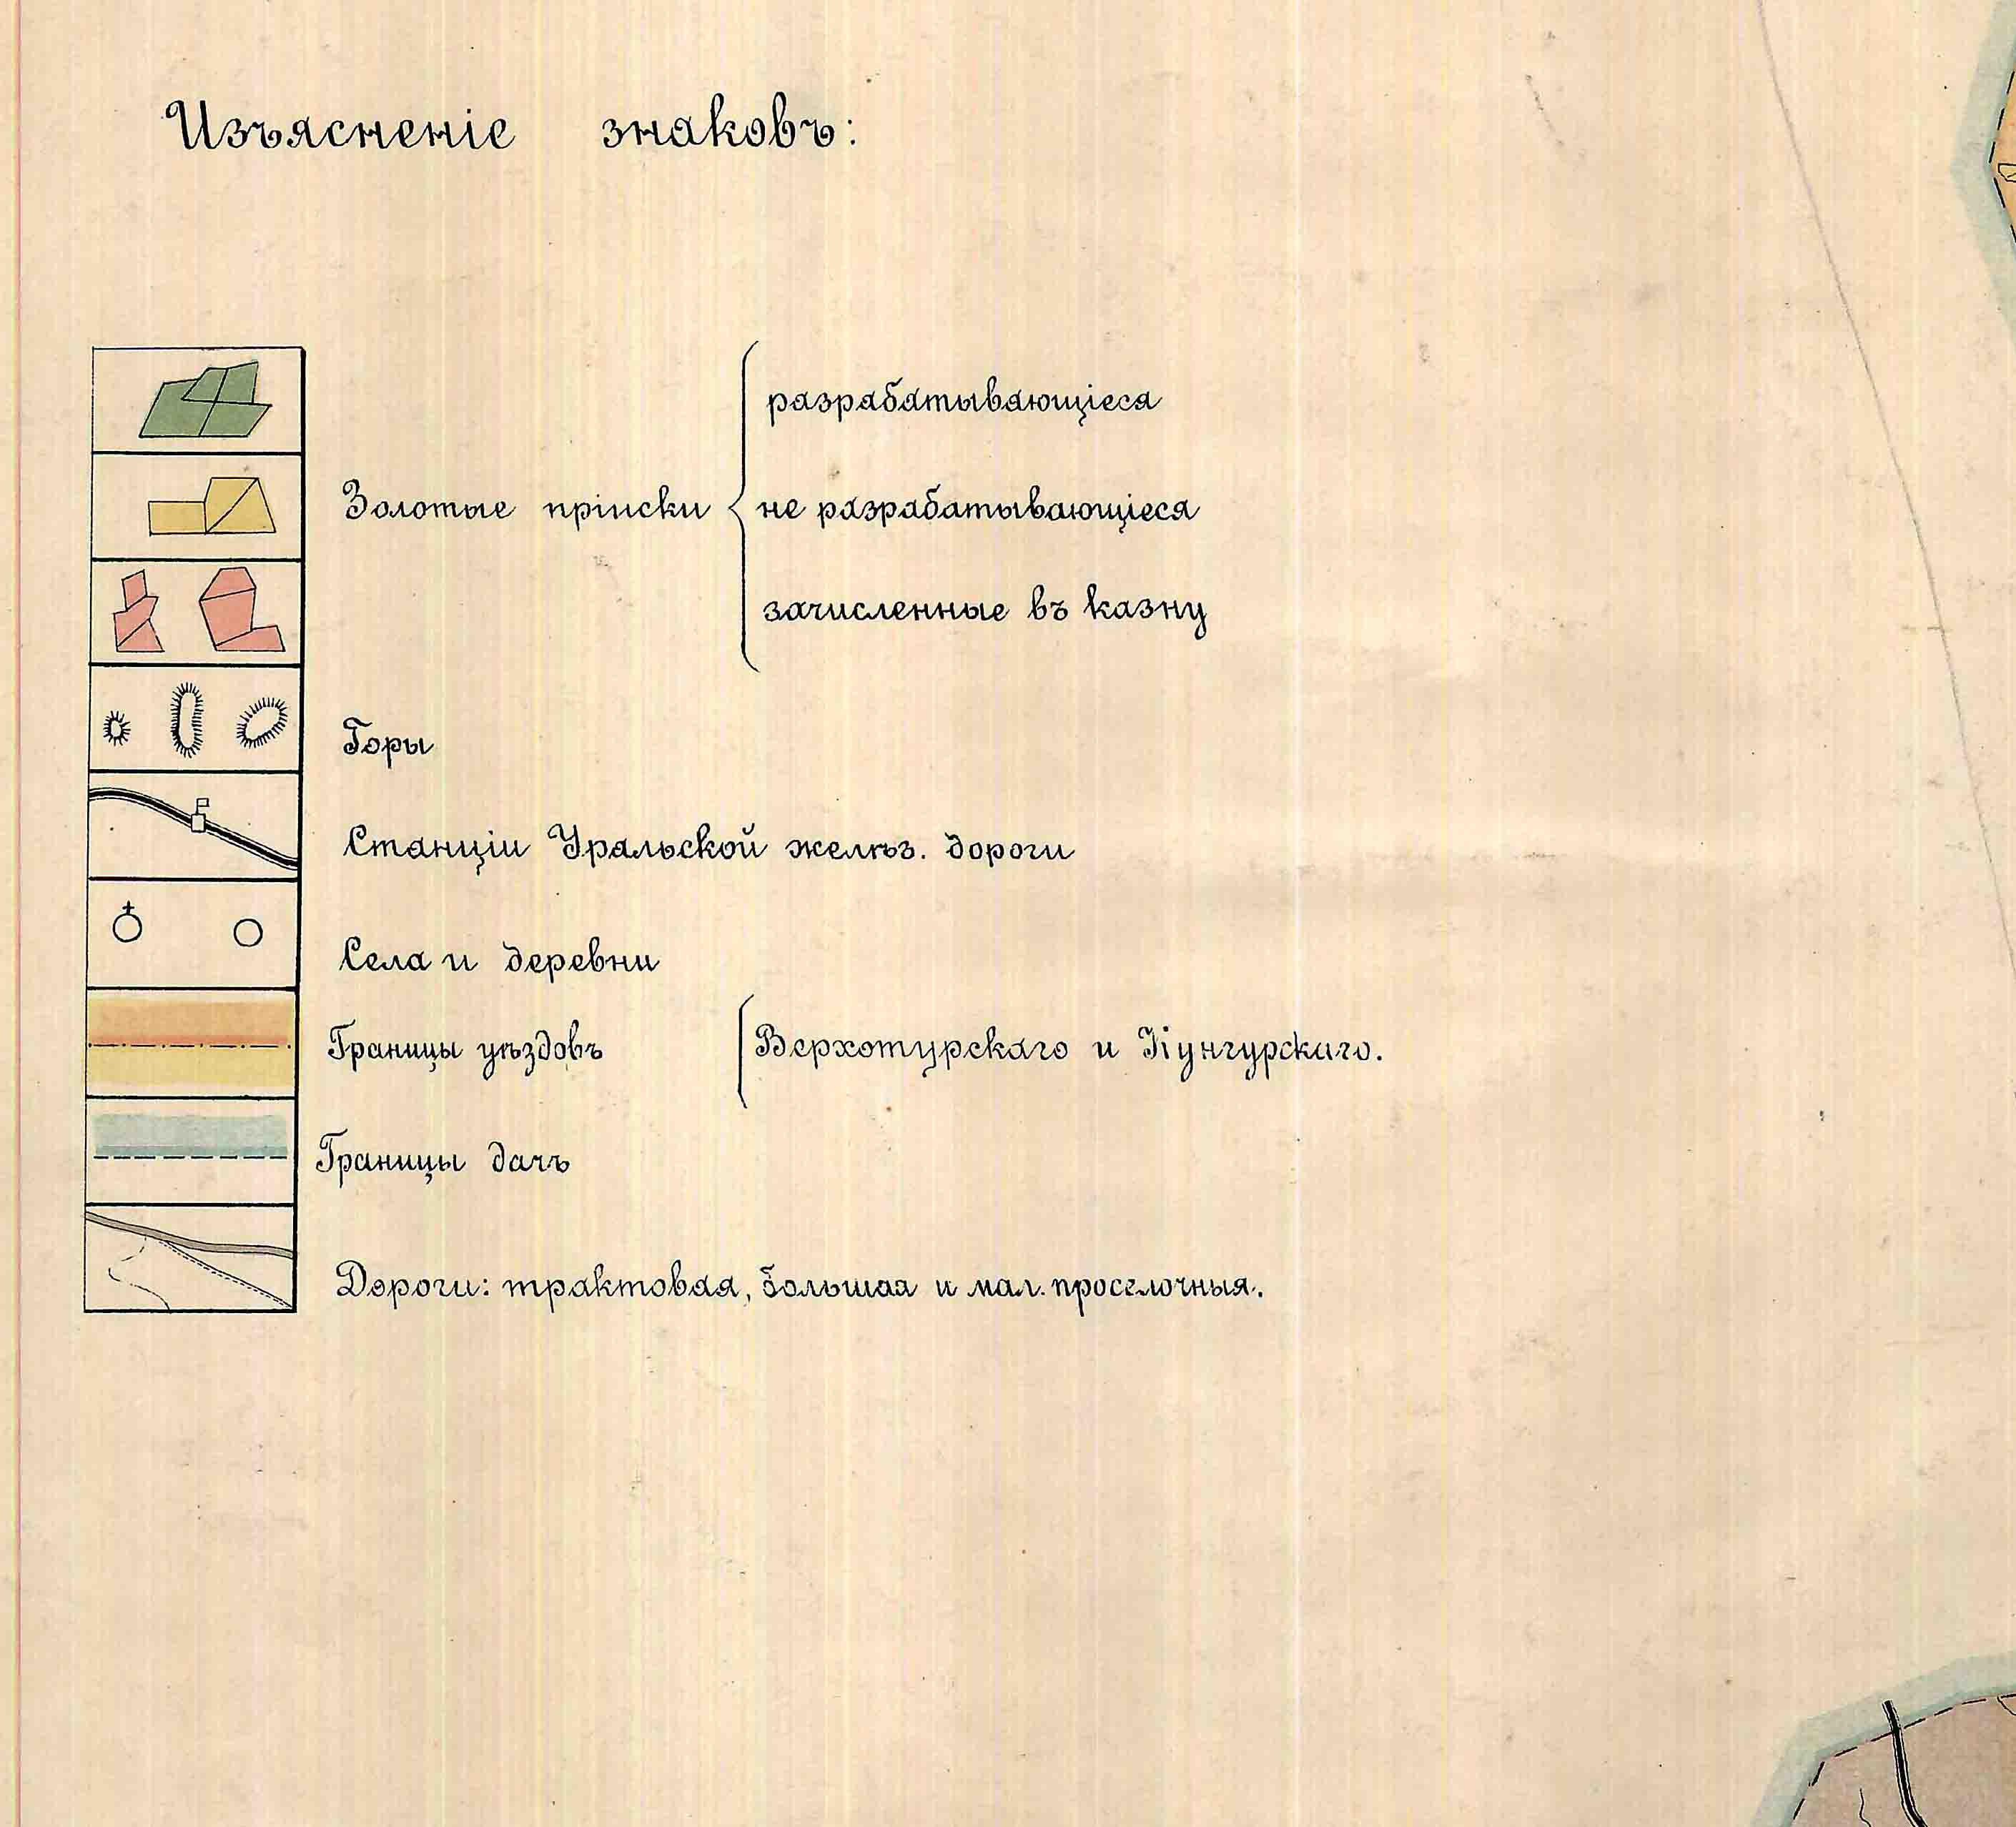 Изъясненіе знаковъ:
разрабатывающіеся
Золотые пріиски
не разрабатывающіеся
зачисленные въ казну
Горы
Станціи Уральской желѣз. дороги
Села и деревни
Границы уѣздовъ
Верхотурскаго и Кунгурскаго.
Границы дачъ
Дороги: трактовая, большая и мал. проселочныя.